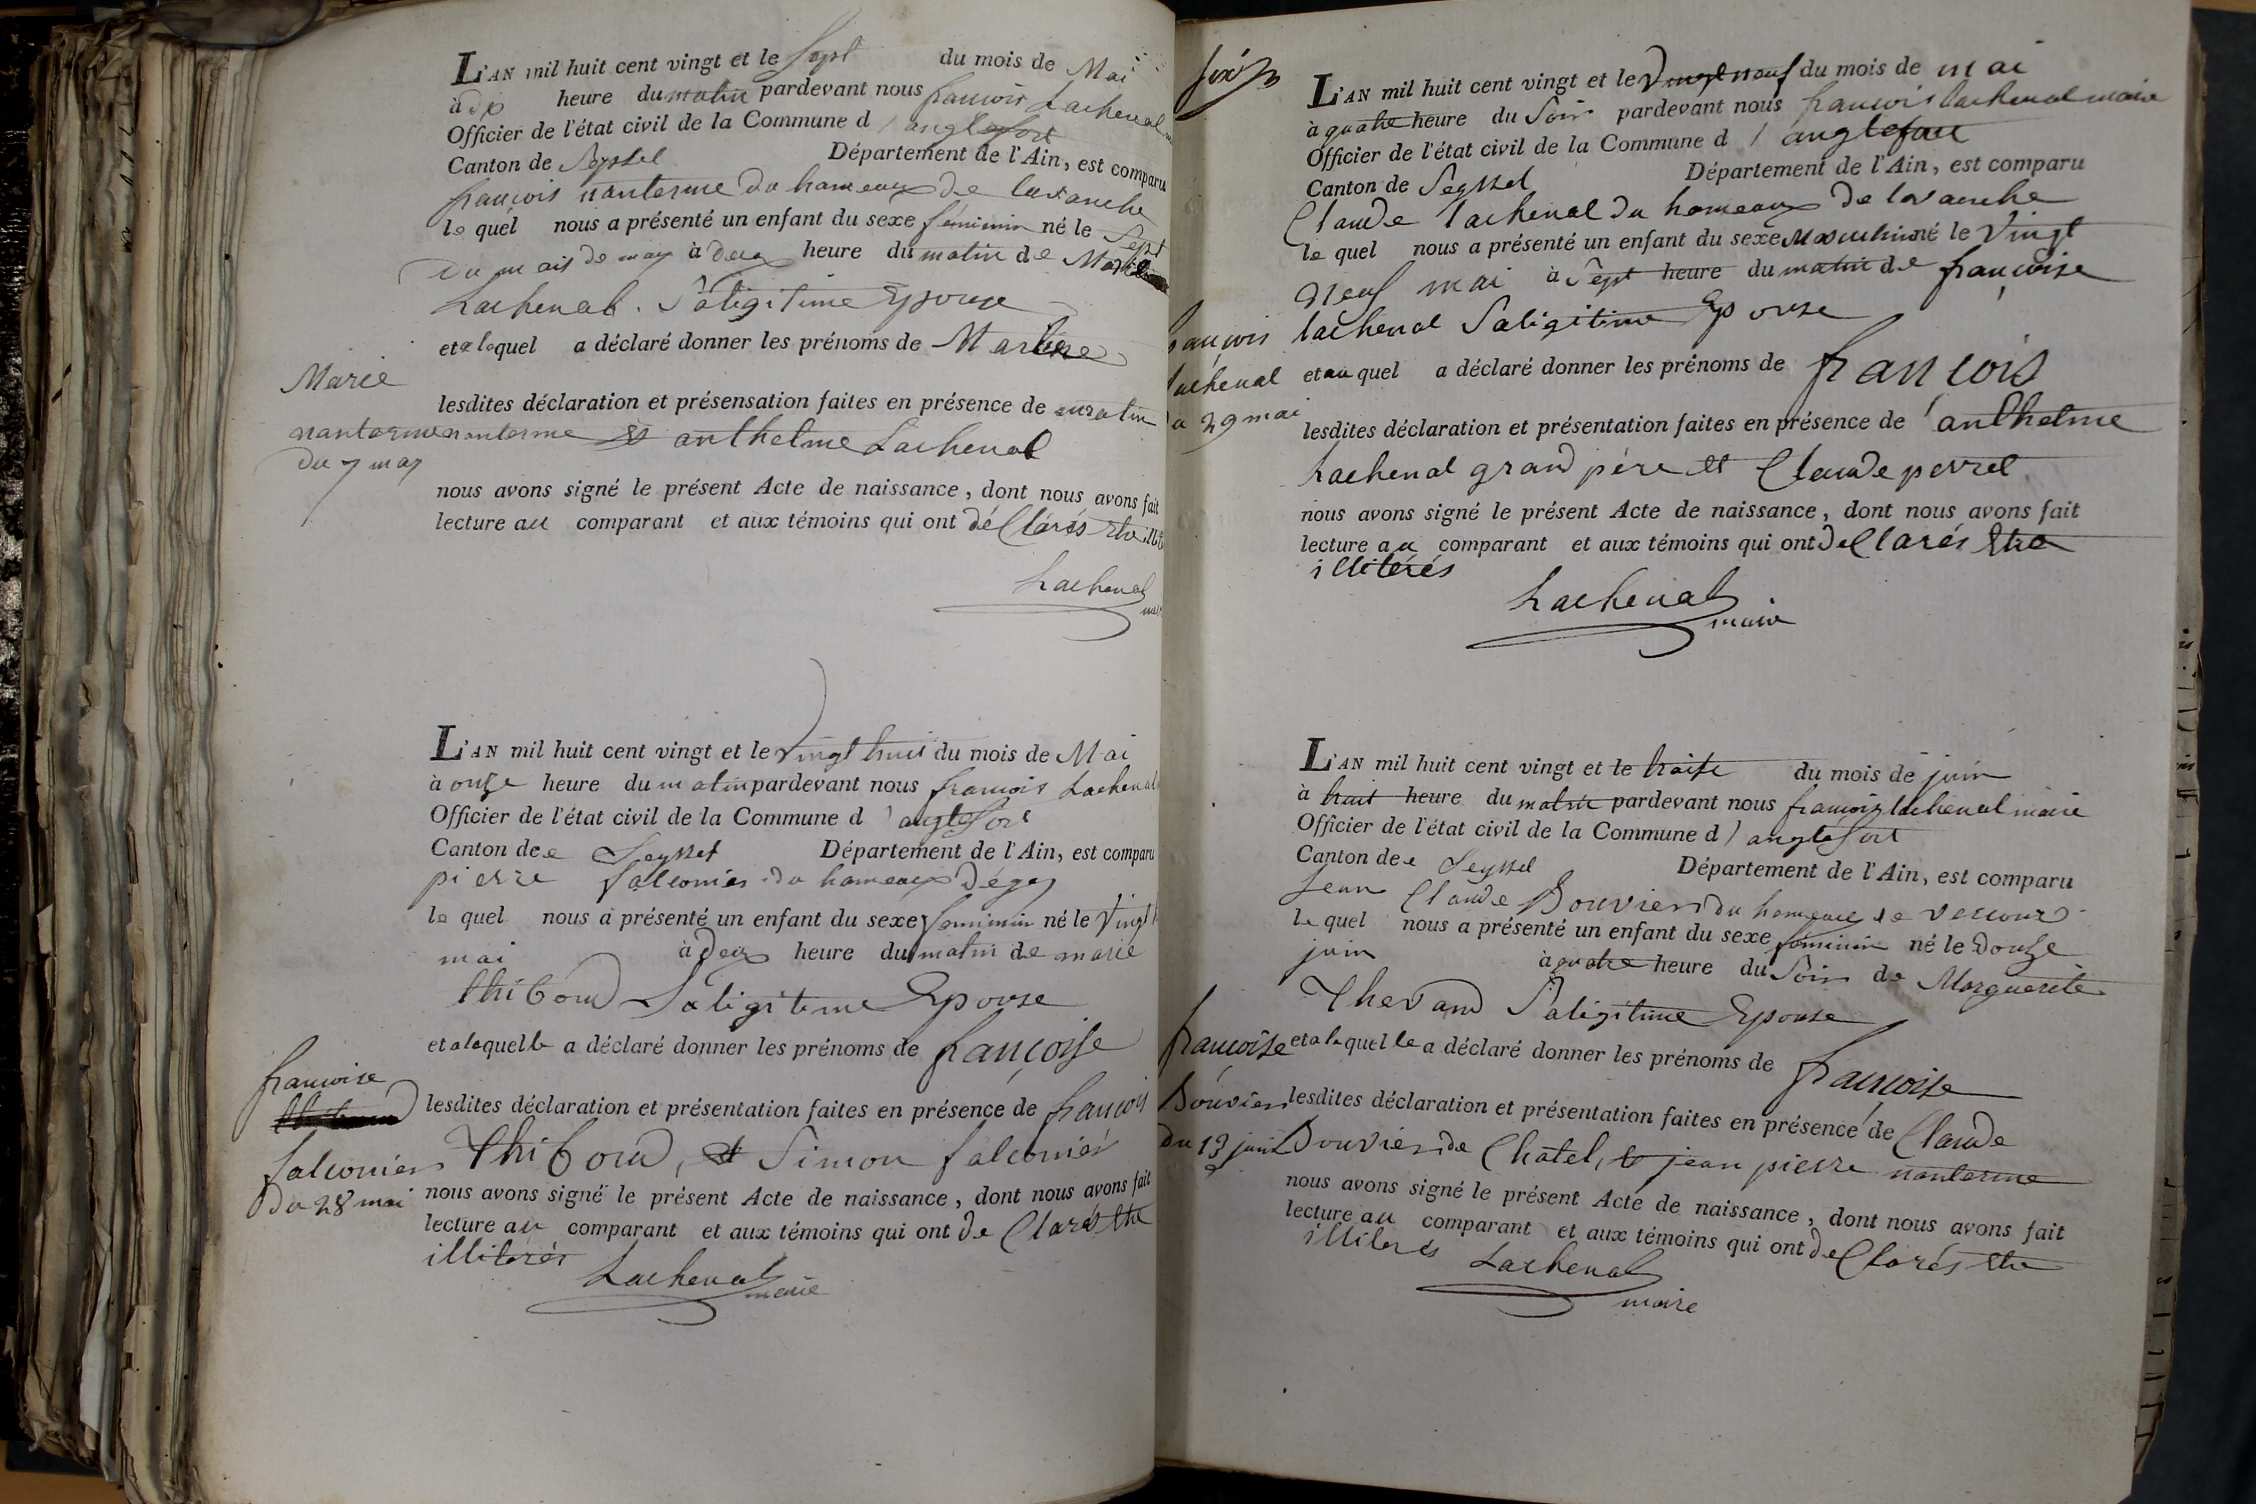 L'AN mil huit cent vingt et le Sept du mois de Mai
à dix heure du matin pardevant nous francois Lachenal
Officier de l'état civil de la Commune d'anglefort
Canton de Seyssel Département de l'Ain, est comparu
francois nanterme du hameaux de lavanche
le quel nous a présenté un enfant du sexe féminin né le Sept
du mois de may à deux heure du matin de Marie
Lachenal Saligitime Epouse
et a laquel a déclaré donner les prénoms de Marie
Marie
lesdites déclaration et présensation faites en présence de
nanterme nanterme et anthelme Lachenal
du 7 may
nous avons signé le présent Acte de naissance, dont nous avons fait
lecture au comparant et aux témoins qui ont déClarés etre
Lachenal
L'AN mil huit cent vingt et le vingt huit du mois de Mai
à onze heure du matin pardevant nous francois Lachenal
Officier de l'état civil de la Commune d'anglefort
Canton de e Seyssel Département de l'Ain, est comparu
pierre falconier du hameaux
le quel nous a présenté un enfant du sexe feminin né le Vingt
mai à deux heure du matin de marie
thiboud Saligitime Epouse
et a laquelle a déclaré donner les prénoms de françoise
francoise
lesdites déclaration et présentation faites en présence de francois
falconier Thiboud, et Simon falconier
du 28 mai
nous avons signé le présent Acte de naissance, dont nous avons fait
lecture au comparant et aux témoins qui ont deClarés etre
illiterés
Lachenal
maire
L'AN mil huit cent vingt et le Vingt neuf du mois de mai
à quatre heure du Soir pardevant nous francois lachenal maire
Officier de l'état civil de la Commune d'anglefort
Canton de Seyssel Département de l'Ain, est comparu
Claude lachenal du hameaux de lavanche
le quel nous a présenté un enfant du sexe Masculin né le Vingt
neuf mai à Sept heure du matin de françoise
françois lachenal Saligitime Epouse
lachenal et au quel a déclaré donner les prénoms de françois
du 29 mai
lesdites déclaration et présentation faites en présence de anthelme
Lachenal grand père et Claude perret
nous avons signé le présent Acte de naissance, dont nous avons fait
lecture au comparant et aux témoins qui ont deClarés Etre
illitérés
Lachenal
maire
L'AN mil huit cent vingt et le treise du mois de juin
à huit heure du matin pardevant nous francois lachenal maire
Officier de l'état civil de la Commune d'anglefort
Canton de e Seyssel Département de l'Ain, est comparu
Jean Claude Bouvier du hameau de
le quel nous a présenté un enfant du sexe féminin né le Douze
juin à quatre heure du Soir de Marguerite
Saligitime Epouse
françoise et a laquelle a déclaré donner les prénoms de francoise
Bouvier lesdites déclaration et présentation faites en présence de Claude
du 13 juin Bouvier de Chatel, et jean pierre nanterme
nous avons signé le présent Acte de naissance, dont nous avons fait
lecture au comparant et aux témoins qui ont deClarés etre
illiterés
Lachenal
maire